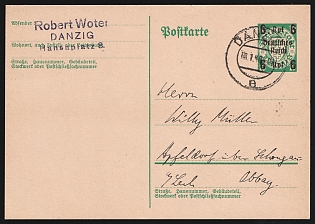 Absender:
Robert Woter
DANZIG
Hansaplatz 8.
Wohnort, auch Zustell- oder Leitpostamt
Straße, Hausnummer, Gebäudeteil,
Stockwerk oder Postschließfachnummer
Postkarte
DANZIG
6 Rpf 6
Deutsches
Reich
6 6
Herrn
Willy Müller
Apfeldorf über Schongau
Straße, Hausnummer, Gebäudeteil,
Stockwerk oder Postschließfachnummer